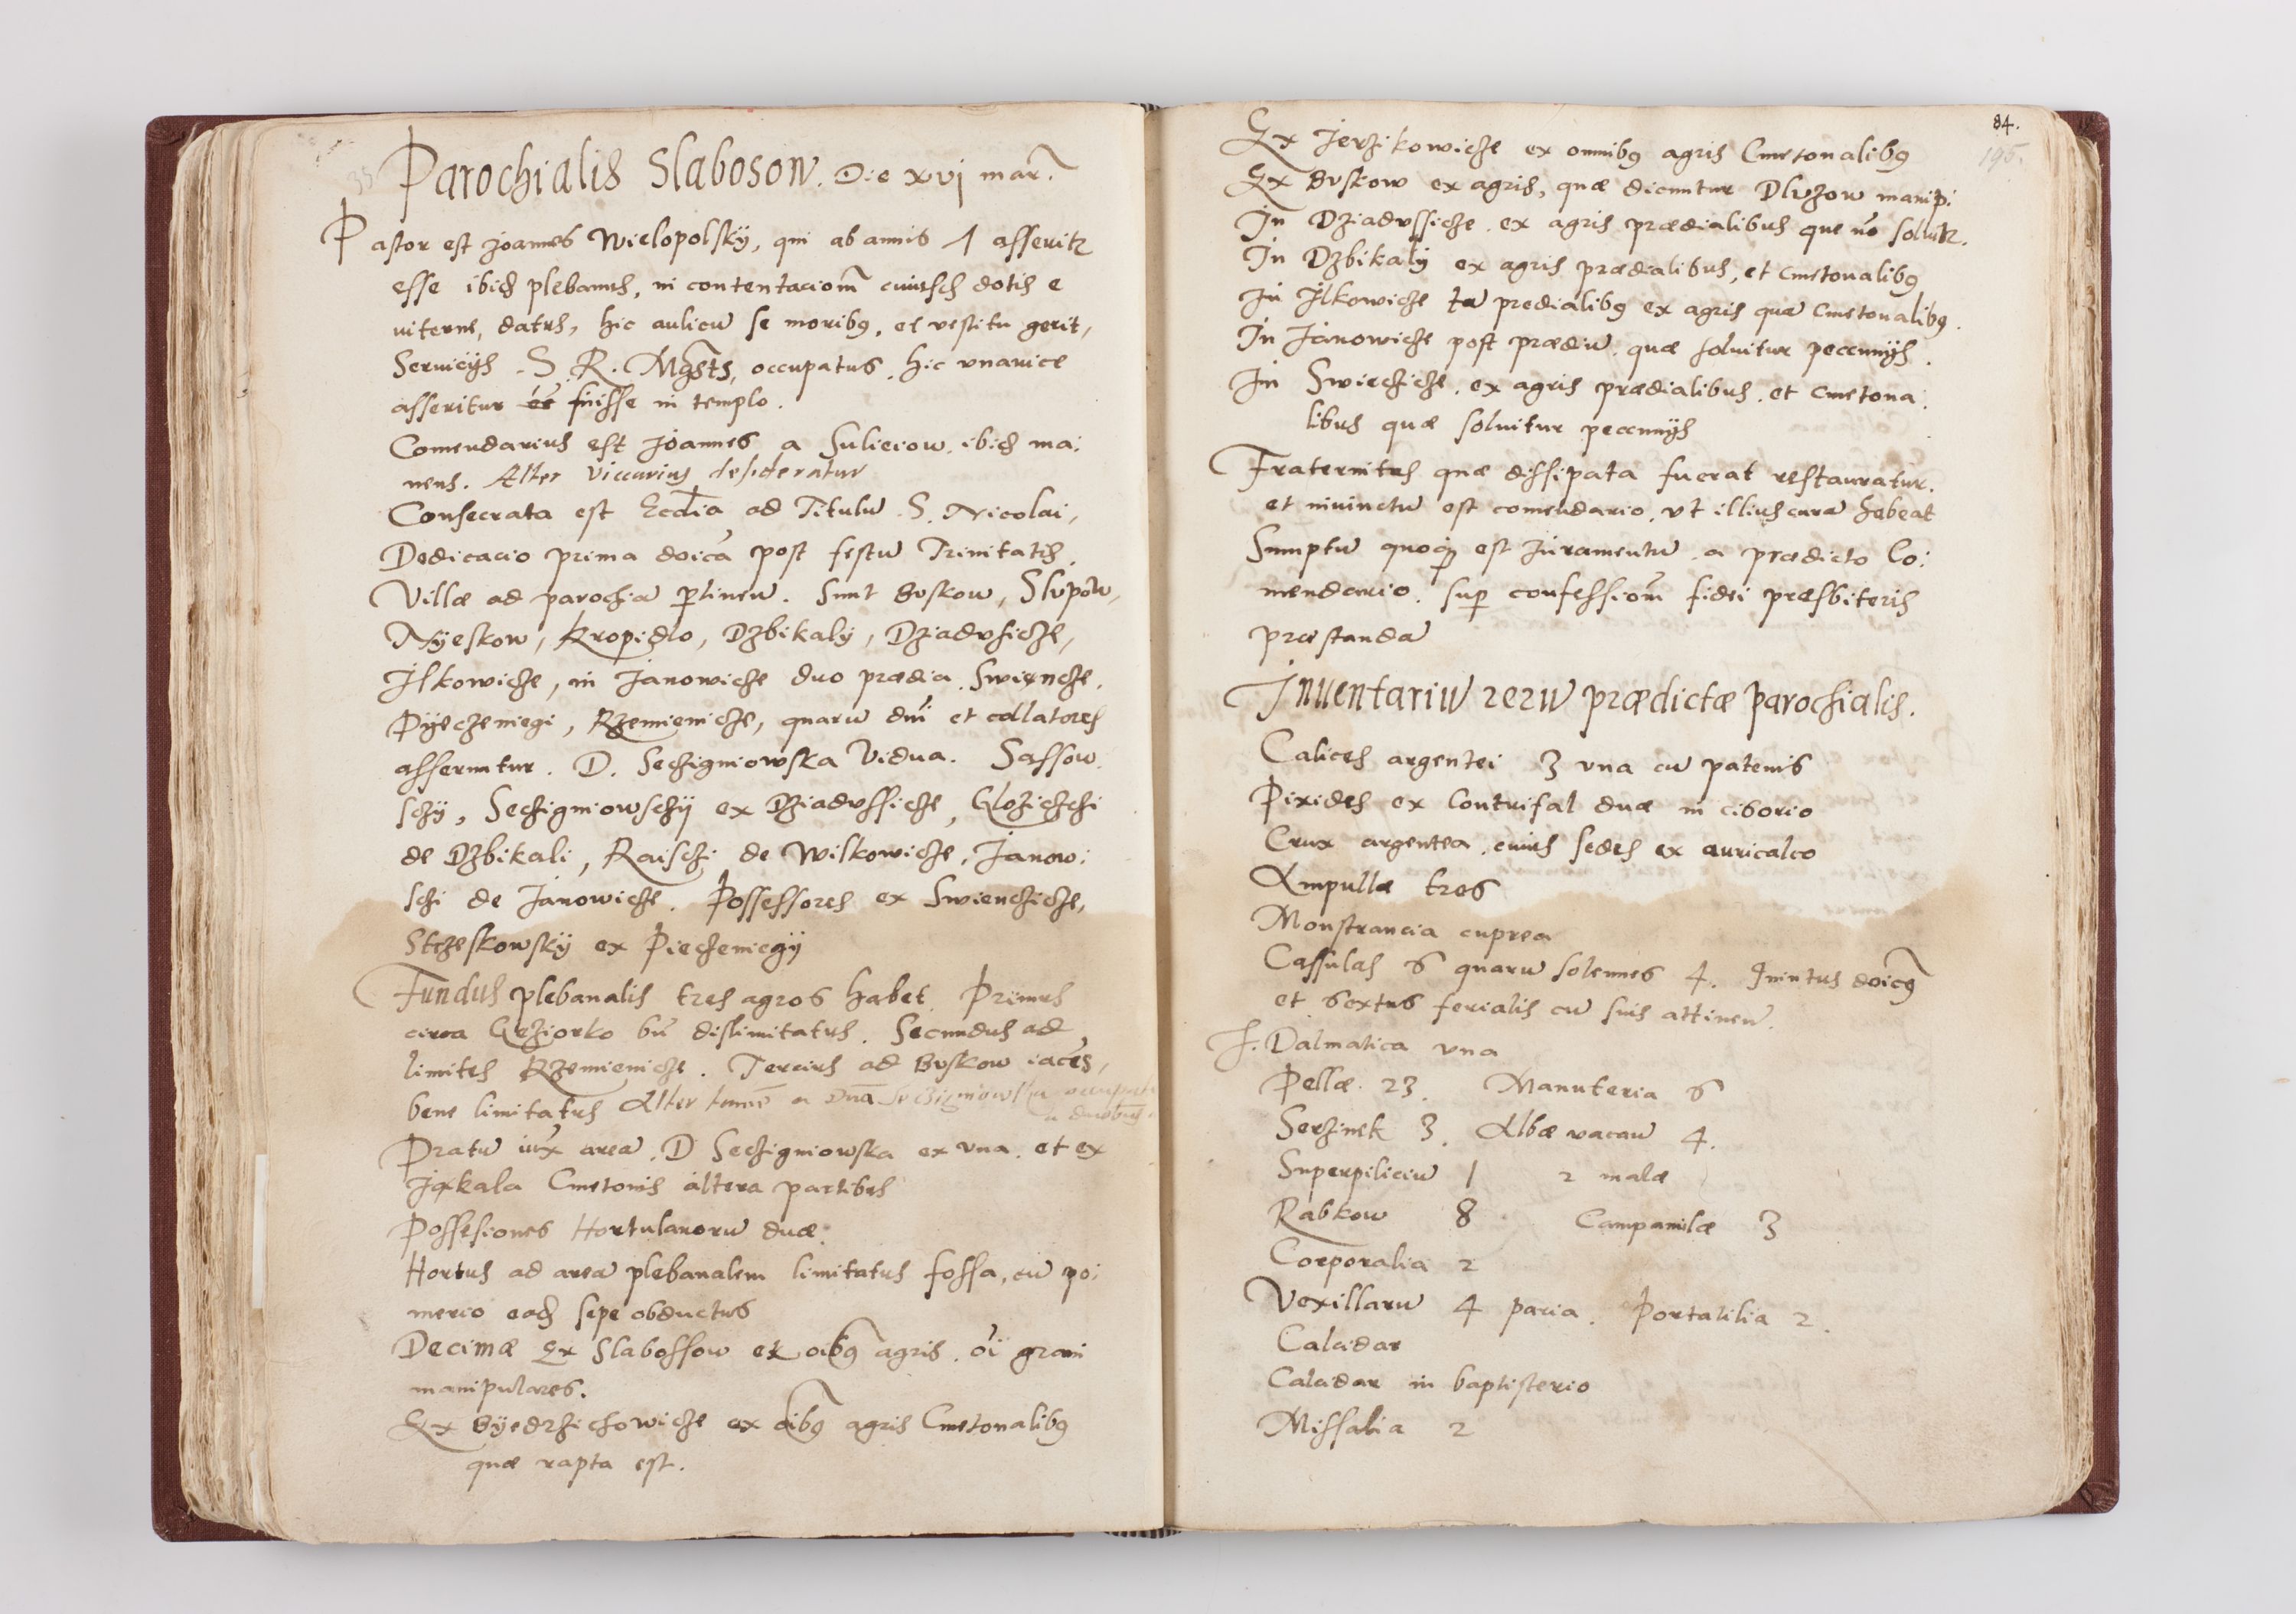 Parochialis Slabosow. Die xvj mar.
Pastor est Joannes Wielopolskÿ, qui ab annis 1 asserit
esse ibid plebanus, in contentaciom cuius dotis e
viterne, datus, hic aulicu se morib9, et vestitu gerit,
Servicÿs S. R. Mgsts, occupatus. hic vna vice
asseritur fuisse in templo.
Comendarius est Joannes a Sulieiow. ibid ma:
nens. Alter Viccarius desideratur
Consecrata est Ecclia ad Titulu S. Nicolai,
Dedicacio prima doica post festu Trinitatis.
Villæ ad parochia ptinen. Sunt Buskow, Slupow,
Nÿeskow, Kropidlo, Dzbikalÿ, Dziadusicze,
Jlkowicze, in Janowicze duo prædia. Swiencze.
Pÿeczeniegi, Rzemienicze, quaru dni et collatores
asseruntur. D. Seczigniowska Vidua. Sassow
schÿ, Seczigniowschÿ ex Dziadussicze, Glozichchi
de Dzbikali, Raischi de Wilkowicze, Janow:
schi de Janowicze. Possessores ex Swienczicze,
Stcheskowskÿ ex Pieczeniegÿ
Fundus plebanalis tres agros habet. Primus
circa Geziorko bn dislimitatus. Secundus ad
limites Rzemienicze. Tercius ad Buskow iaces,
bene limitatus Alter tame a Dna Seczigniowska
Pratu iux area. D Seczigniowska ex vna. et ex
Jakala Cmetonis altera partibus
Possesiones Hortulanoru duæ.
Hortus ad area plebanalem limitatus fossa, cu po:
merio eod sepe obductus
Decimæ Ex Slabossow ex oib9 agris. oi grani
manipulares.
Ex Bÿedrzichowicze ex oib9 agris Cmetonalib9
quæ rapta est.
84.
195.
Ex Jerzikowicze ex omnib9 agris Cmetonalib9
Ex Buskow ex agris, quæ dicuntur Dluzow manipi
In Dziadussicze. ex agris prædialibus que no soluit.
In Dzbikalÿ ex agris prædialibus, et cmetonalib9
In Jlkowicze ta predialib9 ex agris qua Cmetonalib9.
In Janowicze post prædiu. quæ soluitur pecunÿs.
In Swieczicze. ex agris prædialibus. et cmetona
libus quæ soluitur pecunÿs
Fraternitas quæ dissipata fuerat restauratur.
et iniunctu est comendario, vt illius cura habeat
Sumptu quoq est Juramentu a prædicto Co:
mendario. sup confessiom fidei presbiteris
præstanda
Inuentariu reru prædictæ parochialis.
Calices argentei 3 vna cu patenis
Pixides ex Contrifal duæ in ciborio
Crux argentea. cuius sedes ex auricalco
Ampullæ tres
Monstrancia cuprea
Cassulas 6 quaru solennes 4. Quintus doic9
et sextus ferialis cu suis attinen.
f. Dalmatica vna
Pellæ 23. Manuteria 6
Serzinek 3. Albæ vacau 4.
Superpiliciu 1 2 malæ
Rabkow 8 Campanulæ 3
Corporalia 2
Vexillaru 4 paria. Portatilia 2.
Calcidar
Calcidar in baptisterio
Missalia 2